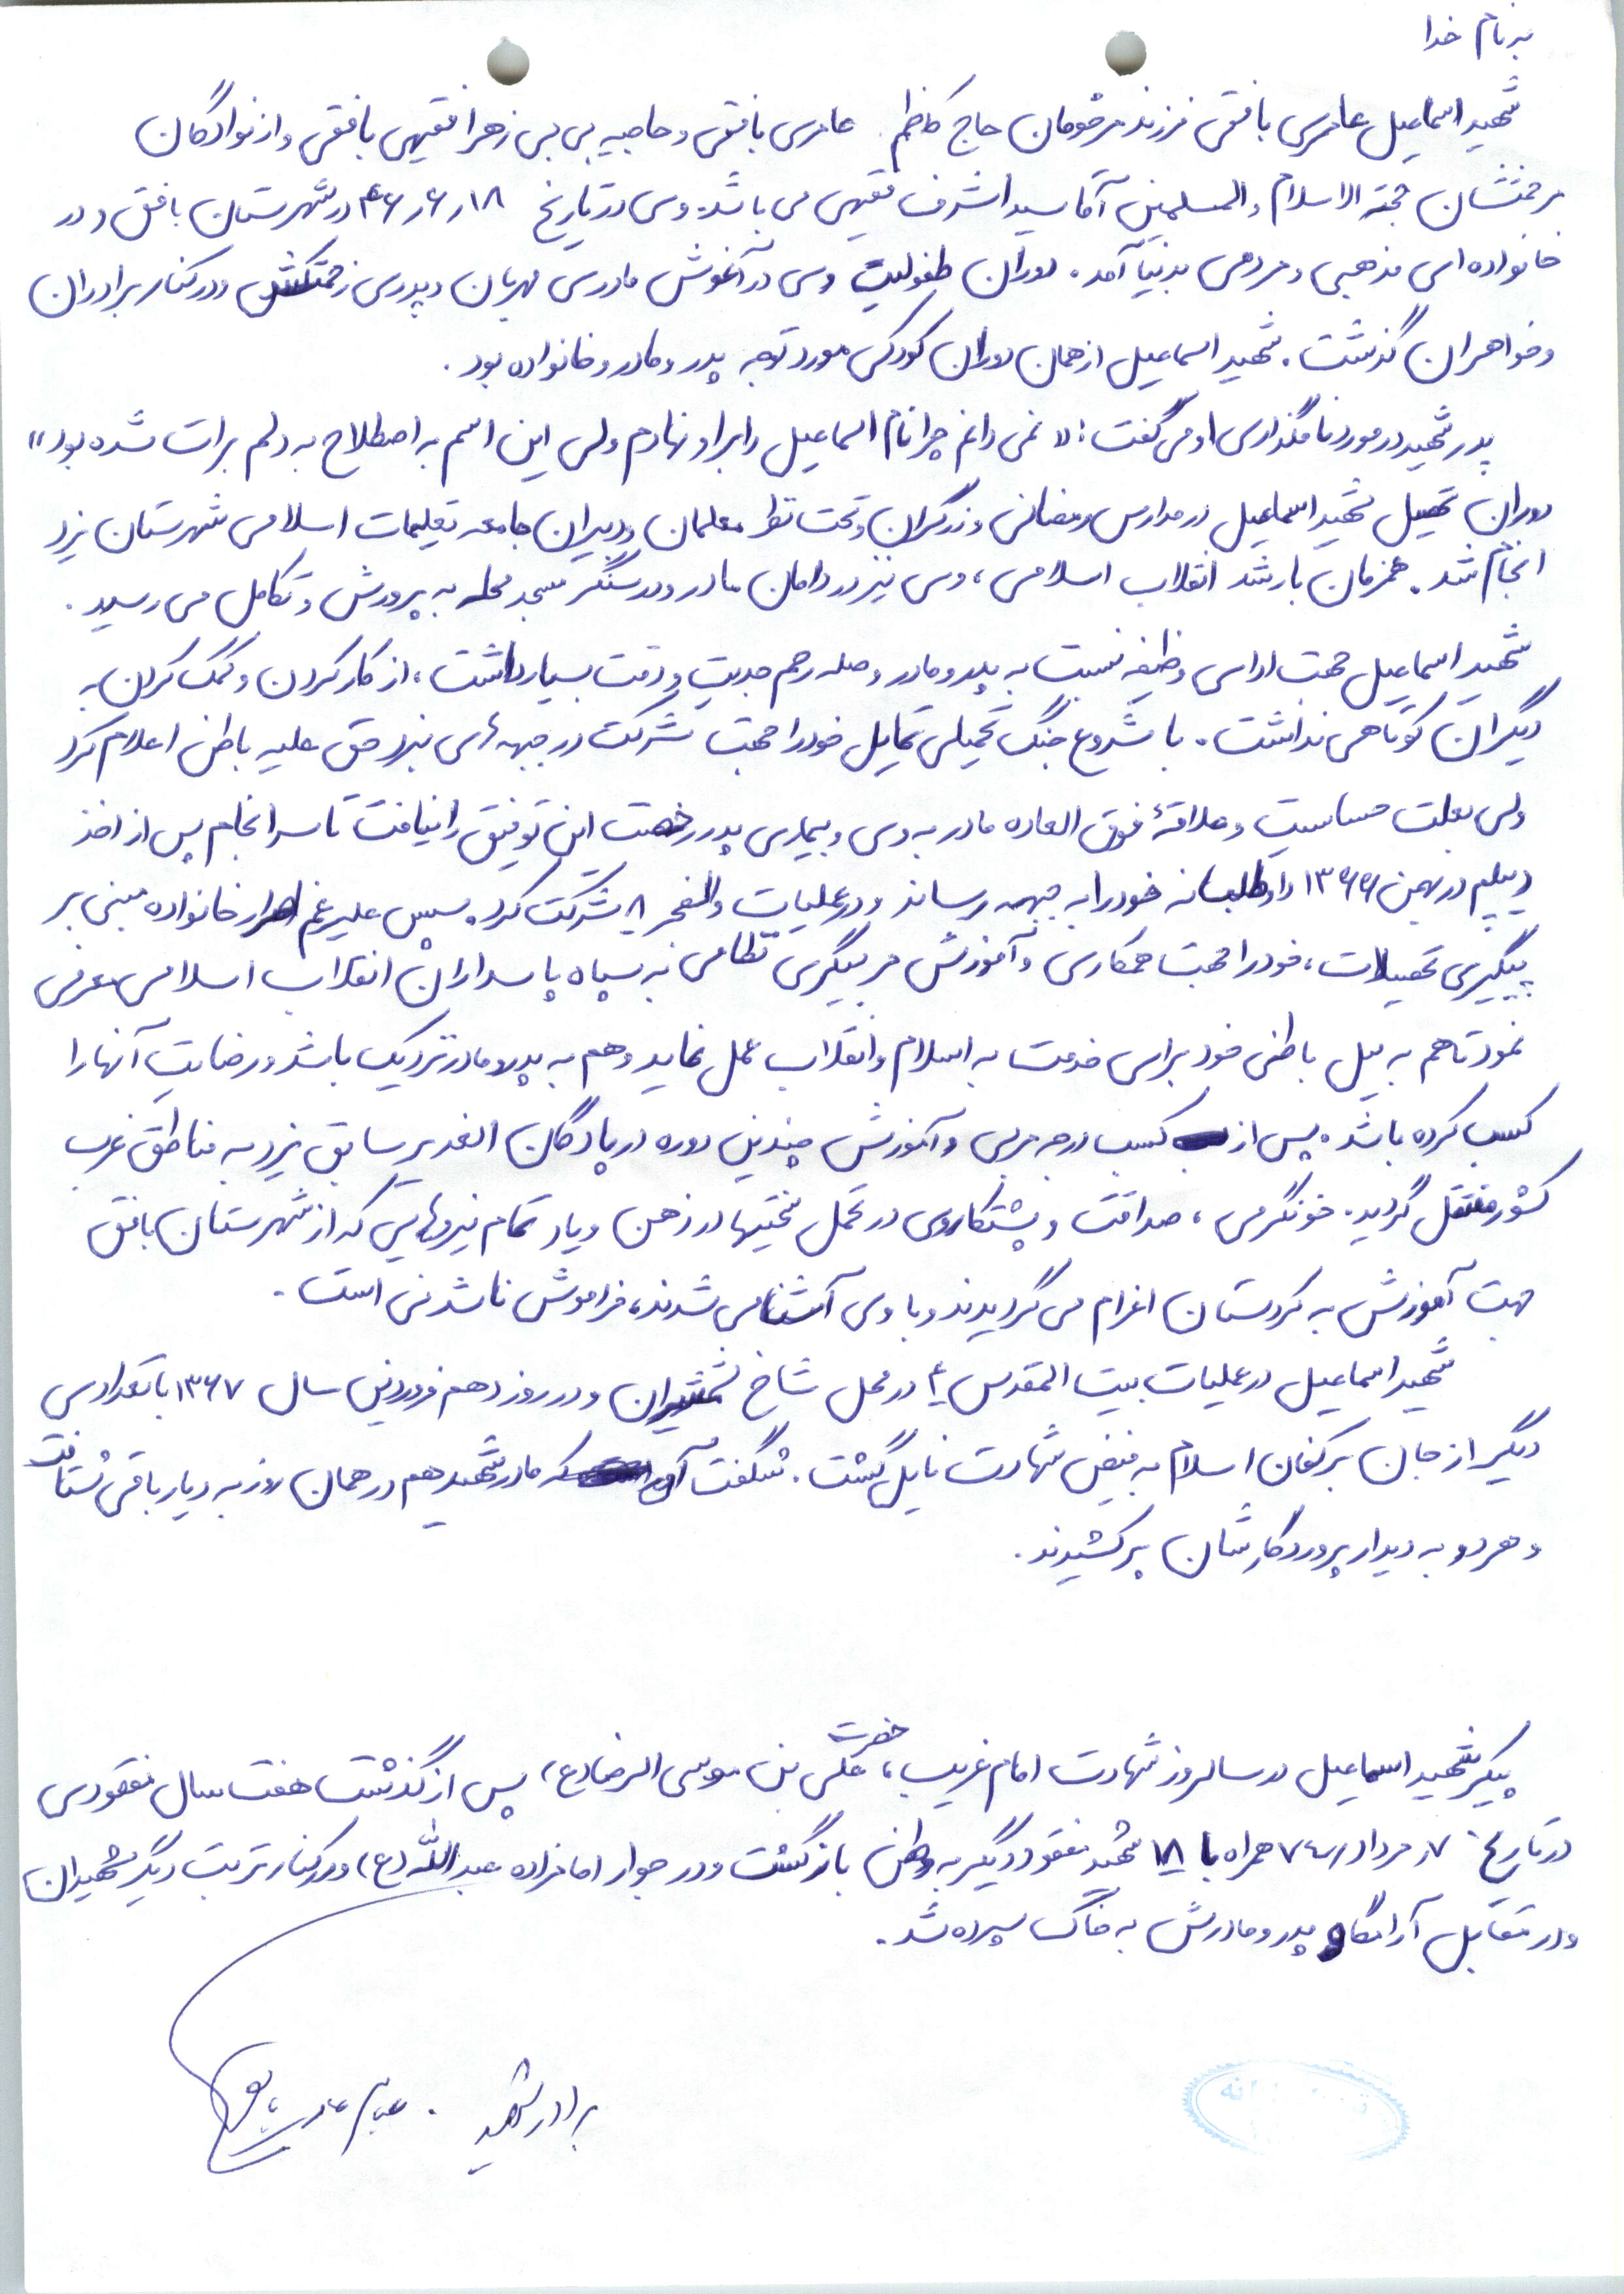 به نام خدا
شهید اسماعیل عامری بافقی فرزند مرحومان حاج کاظم عامری بافقی و حاجیه بی بی زهرا فقیهی بافقی و از نوادگان
مرحمتشان حجة الاسلام والمسلمین آقا سید اشرف فقیهی می باشد. وی در تاریخ ۱۸ر۶ر۴۶ در شهرستان بافق و در
خانواده ای مذهبی و مردمی بدنیا آمد. دوران طفولیت وی در آغوش مادری مهربان و پدری زحمتکش و در کنار برادران
و خواهران گذشت. شهید اسماعیل از همان دوران کودکی مورد توجه پدر و مادر و خانواده بود.
پدر شهید در مورد نامگذاری او می گفت: «نمی دانم چرا نام اسماعیل را بر او نهادم ولی این اسم به اصطلاح به دلم برات شده بود»
دوران تحصیل شهید اسماعیل در مدارس رمضانی و زرگران و تحت نظر معلمان و دبیران جامعه تعلیمات اسلامی شهرستان یزد
انجام شد. همزمان با رشد انقلاب اسلامی، وی نیز در دامان مادر و در سنگر مسجد محله به پرورش و تکامل می رسید.
شهید اسماعیل جهت ادای وظیفه نسبت به پدر و مادر و صله رحم جدیت و دقت بسیار داشت، از کار کردن و کمک کردن به
دیگران کوتاهی نداشت. با شروع جنگ تحمیلی تمایل خود را جهت شرکت در جبهه های نبرد حق علیه باطل اعلام کرد
ولی بعلت حساسیت و علاقهٔ فوق العاده مادر به وی و بیماری پدر رخصت این توفیق را نیافت تا سرانجام پس از اخذ
دیپلم در بهمن ۱۳۶۴ داوطلبانه خود را به جبهه رساند و در عملیات والفجر ۸ شرکت کرد. سپس علیرغم اصرار خانواده مبنی بر
پیگیری تحصیلات، خود را جهت همکاری و آموزش مربیگری نظامی به سپاه پاسداران انقلاب اسلامی معرفی
نمود تا هم به میل باطنی خود برای خدمت به اسلام و انقلاب عمل نماید و هم به پدر و مادر نزدیک باشد و رضایت آنها را
کسب کرده باشد. پس از کسب درجه مربی و آموزش چندین دوره در پادگان الغدیر سابق یزد به مناطق غرب
کشور منتقل گردید. خونگرمی، صداقت و پشتکار وی در تحمل سختیها در ذهن و یاد تمام نیروهایی که از شهرستان بافق
جهت آموزش به کردستان اعزام می گردیدند و با وی آشنا می شدند، فراموش ناشدنی است.
شهید اسماعیل در عملیات بیت المقدس ۴ در محل شاخ شمیران و در روز دهم فروردین سال ۱۳۶۷ با تعدادی
دیگر از جان بر کفان اسلام به فیض شهادت نایل گشت. شگفت آن که مادر شهید هم در همان روز به دیار باقی شتافت
و هر دو به دیدار پروردگارشان پر کشیدند.
پیکر شهید اسماعیل در سالروز شهادت امام غریب، حضرت علی بن موسی الرضا (ع)، پس از گذشت هفت سال مفقودی
در تاریخ ۷ر مرداد ر۷۴ همراه با ۱۸ شهید مفقود دیگر به وطن بازگشت و در جوار امامزاده عبدالله (ع) و در کنار تربت دیگر شهیدان
و در مقابل آرامگاه پدر و مادرش به خاک سپرده شد.
برادر شهید